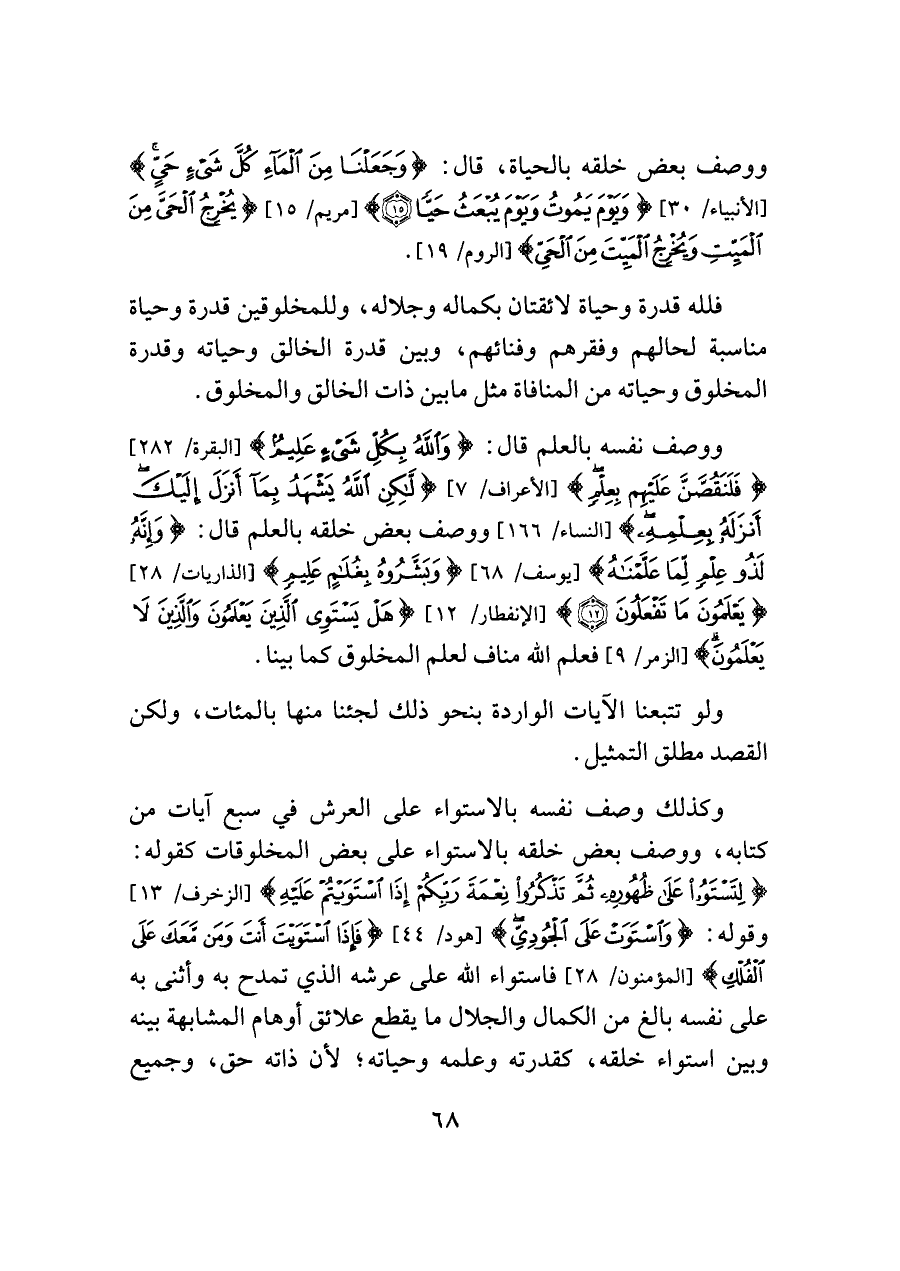 ووصف بعض خلقه بالحياة، قال: ﴿ وَجَعَلْنَا مِنَ ٱلْمَآءِ كُلَّ شَىْءٍ حَىٍّۚ ﴾
[الأنبياء/ ٣٠] ﴿ وَيَوْمَ يَمُوتُ وَيَوْمَ يُبْعَثُ حَيًّا ١٥ ﴾ [مريم/ ١٥] ﴿ يُخْرِجُ ٱلْحَىَّ مِنَ
ٱلْمَيِّتِ وَيُخْرِجُ ٱلْمَيِّتَ مِنَ ٱلْحَىِّ ﴾ [الروم/ ١٩].
فلله قدرة وحياة لائقتان بكماله وجلاله، وللمخلوقين قدرة وحياة
مناسبة لحالهم وفقرهم وفنائهم، وبين قدرة الخالق وحياته وقدرة
المخلوق وحياته من المنافاة مثل مابين ذات الخالق والمخلوق.
ووصف نفسه بالعلم قال: ﴿ وَٱللَّهُ بِكُلِّ شَىْءٍ عَلِيمٌ ﴾ [البقرة/ ٢٨٢]
﴿ فَلَنَقُصَّنَّ عَلَيْهِم بِعِلْمٍۖ ﴾ [الأعراف/ ٧] ﴿ لَّٰكِنِ ٱللَّهُ يَشْهَدُ بِمَآ أَنزَلَ إِلَيْكَۖ
أَنزَلَهُۥ بِعِلْمِهِۦۖ ﴾ [النساء/ ١٦٦] ووصف بعض خلقه بالعلم قال: ﴿ وَإِنَّهُۥ
لَذُو عِلْمٍ لِّمَا عَلَّمْنَٰهُ ﴾ [يوسف/ ٦٨] ﴿ وَبَشَّرُوهُ بِغُلَٰمٍ عَلِيمٍ ﴾ [الذاريات/ ٢٨]
﴿ يَعْلَمُونَ مَا تَفْعَلُونَ ١٢ ﴾ [الإنفطار/ ١٢] ﴿ هَلْ يَسْتَوِى ٱلَّذِينَ يَعْلَمُونَ وَٱلَّذِينَ لَا
يَعْلَمُونَۗ ﴾ [الزمر/ ٩] فعلم الله مناف لعلم المخلوق كما بينا.
ولو تتبعنا الآيات الواردة بنحو ذلك لجئنا منها بالمئات، ولكن
القصد مطلق التمثيل.
وكذلك وصف نفسه بالاستواء على العرش في سبع آيات من
كتابه، ووصف بعض خلقه بالاستواء على بعض المخلوقات كقوله:
﴿ لِتَسْتَوُۥا۟ عَلَىٰ ظُهُورِهِۦ ثُمَّ تَذْكُرُوا۟ نِعْمَةَ رَبِّكُمْ إِذَا ٱسْتَوَيْتُمْ عَلَيْهِ ﴾ [الزخرف/ ١٣]
وقوله: ﴿ وَٱسْتَوَتْ عَلَى ٱلْجُودِىِّۖ ﴾ [هود/ ٤٤] ﴿ فَإِذَا ٱسْتَوَيْتَ أَنتَ وَمَن مَّعَكَ عَلَى
ٱلْفُلْكِ ﴾ [المؤمنون/ ٢٨] فاستواء الله على عرشه الذي تمدح به وأثنى به
على نفسه بالغ من الكمال والجلال ما يقطع علائق أوهام المشابهة بينه
وبين استواء خلقه، كقدرته وعلمه وحياته؛ لأن ذاته حق، وجميع
٦٨